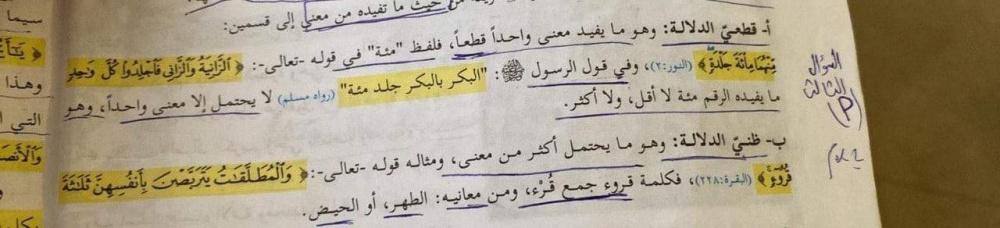 من حيث ما تفيده من معنى إلى قسمين:
أ- قطعيّ الدلالة: وهو ما يفيد معنى واحداً قطعاً، فلفظ "مئة" في قوله -تعالى-: ﴿ ٱلزَّانِيَةُ وَٱلزَّانِي فَٱجْلِدُوا۟ كُلَّ وَٰحِدٍ
مِّنْهُمَا مِا۟ئَةَ جَلْدَةٍ ﴾ (النور:٢)، وفي قول الرسول ﷺ: "البكر بالبكر جلد مئة" (رواه مسلم) لا يحتمل إلا معنى واحداً، وهو
ما يفيده الرقم مئة لا أقل، ولا أكثر.
ب- ظنيّ الدلالة: وهو ما يحتمل أكثر من معنى، ومثاله قوله -تعالى-: ﴿ وَٱلْمُطَلَّقَٰتُ يَتَرَبَّصْنَ بِأَنفُسِهِنَّ ثَلَٰثَةَ
قُرُوٓءٍ ﴾ (البقرة:٢٢٨)، فكلمة قروء جمع قُرْء، ومن معانيه: الطهر، أو الحيض.
السؤال
الثالث
سيما
وهذا
التي ا